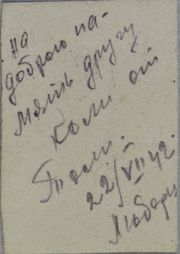 На
доброю па-
мять другу
Коли от
Толи.
22/VII 42.
Люберц